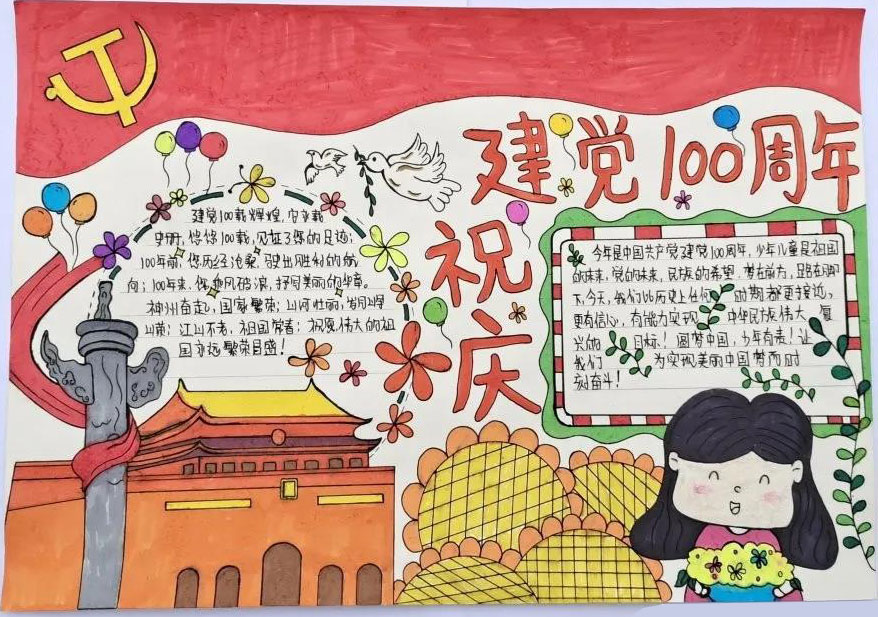 建党100周年
祝庆
建党100载辉煌,
史册,悠悠100载,见证了您的足迹;
100年前,您历经沧桑,驶出胜利的航
向;100年来,您乘风破浪,抒写美丽的华章。
神州奋起,国家繁荣;山河壮丽,岁月峥
嵘;江山不老,祖国常春;祝愿伟大的祖
国永远繁荣昌盛!
今年是中国共产党建党100周年,少年儿童是祖国
的未来,党的未来,民族的希望,潜在前方,路在脚
下,今天,我们比历史上任何 时期都更接近,
更有信心,有能力实现 中华民族伟大 复
兴的 目标!圆梦中国,少年有责!让
我们 为实现美丽中国梦而时
刻奋斗!